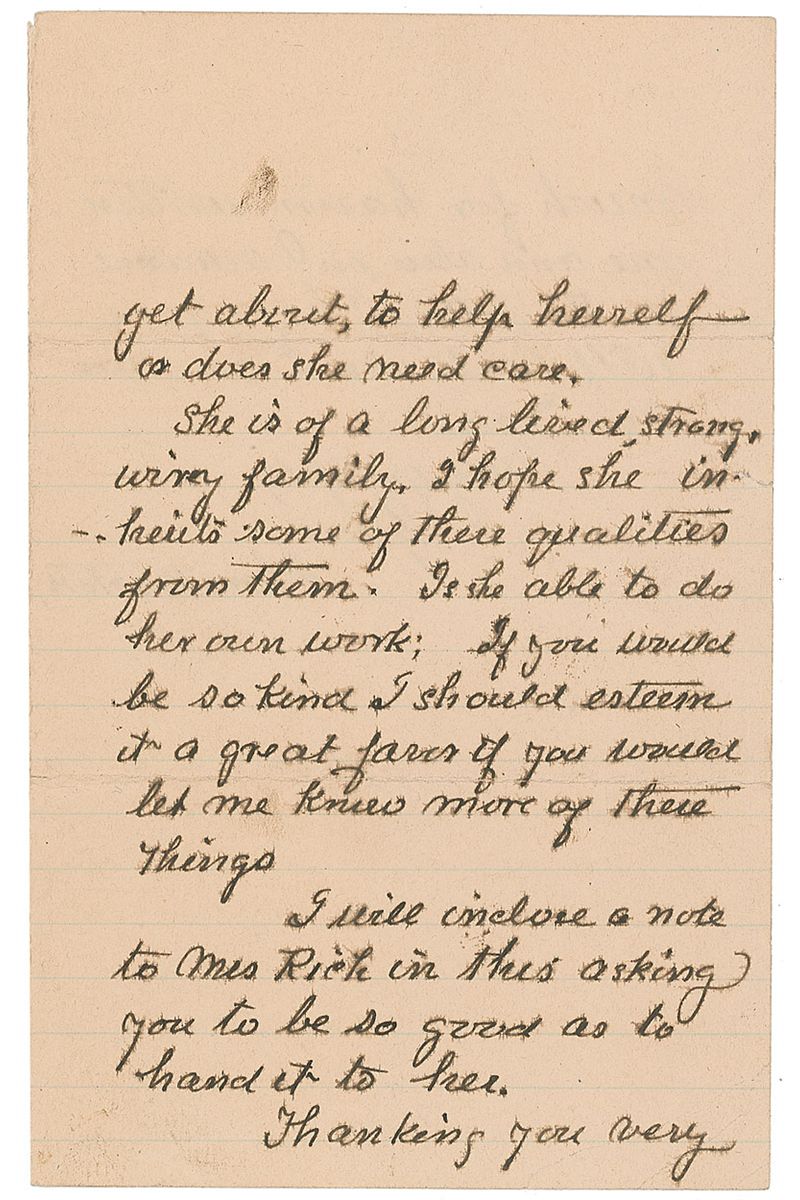 get about, to help herself
or does she need care.
She is of a long lived strong,
wirey family, I hope she in-
herits some of these qualities
from them. Is she able to do
her own work; If you would
be so kind I should esteem
it a great favor if you would
let me know more of these
things
I will inclose a note
to Mrs Rich in this asking
you to be so good as to
hand it to her.
Thanking you very